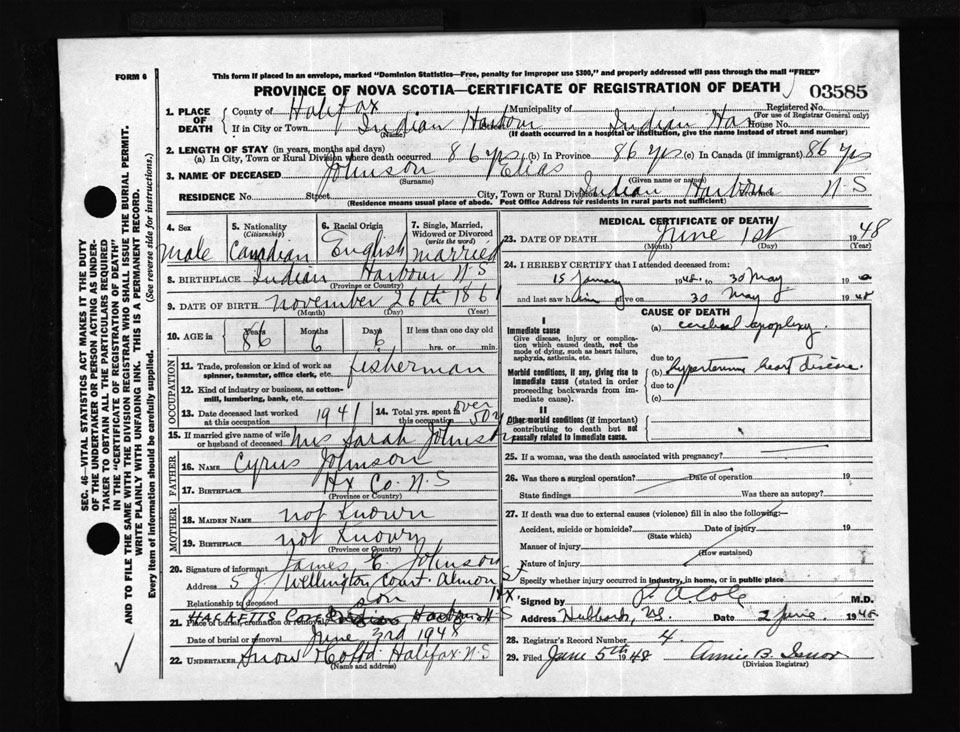 FORM 6
This form if placed in an envelope, marked "Dominion Statistics—Free, penalty for improper use $300," and properly addressed will pass through the mail "FREE"
PROVINCE OF NOVA SCOTIA—CERTIFICATE OF REGISTRATION OF DEATH
03585
1. PLACE OF DEATH
County of Halifax Municipality of Registered No.
(For use of Registrar General only)
If in City or Town Indian Harbour Indian Har House No.
(Name) (If death occurred in a hospital or institution, give the name instead of street and number)
2. LENGTH OF STAY (in years, months and days)
(a) In City, Town or Rural Division where death occurred 86 yrs (b) In Province 86 yrs (c) In Canada (if immigrant) 86 yrs
3. NAME OF DECEASED Johnson Elias
(Surname) (Given name or names)
RESIDENCE No. Street City, Town or Rural Division Indian Harbour N-S
(Residence means usual place of abode. Post Office Address for residents in rural parts not sufficient)
4. Sex
Male
5. Nationality
(Citizenship)
Canadian
6. Racial Origin
English
7. Single, Married, Widowed or Divorced
(write the word)
married
8. BIRTHPLACE Indian Harbour N-S
(Province or Country)
9. DATE OF BIRTH November 26th 1861
(Month) (Day) (Year)
10. AGE in Years Months Days If less than one day old
86 6 6 hrs. or min.
OCCUPATION
11. Trade, profession or kind of work as spinner, teamster, office clerk, etc. fisherman
12. Kind of industry or business, as cotton-mill, lumbering, bank, etc.
13. Date deceased last worked at this occupation 1941
14. Total yrs. spent in this occupation over 50 y
15. If married give name of wife or husband of deceased Mrs Sarah Johnson
FATHER
16. NAME Cyrus Johnson
17. BIRTHPLACE Hx Co. N-S
(Province or Country)
MOTHER
18. MAIDEN NAME not Known
19. BIRTHPLACE not Known
(Province or Country)
20. Signature of informant James E. Johnson
Address 5 J Wellington Court. Almon St Hx.
Relationship to deceased son
21. Place of burial, cremation or removal HACKETTS Indian Harbour N-S
Date of burial or removal June 3rd 1948
22. UNDERTAKER Snow & Co Ltd. Halifax. N-S
(Name and address)
MEDICAL CERTIFICATE OF DEATH
23. DATE OF DEATH June 1st 1948
(Month) (Day) (Year)
24. I HEREBY CERTIFY that I attended deceased from:
15 January 1948 to 30 May 19
and last saw him alive on 30 May 1948
CAUSE OF DEATH
I
Immediate cause
Give disease, injury or complication which caused death, not the mode of dying, such as heart failure, asphyxia, asthenia, etc.
(a) cerebral apoplexy.
due to
Morbid conditions, if any, giving rise to immediate cause (stated in order proceeding backwards from immediate cause).
(b) hypertensive heart disease.
due to
(c)
II
Other morbid conditions (if important) contributing to death but not causally related to immediate cause.
25. If a woman, was the death associated with pregnancy?
26. Was there a surgical operation? Date of operation 19
State findings Was there an autopsy?
27. If death was due to external causes (violence) fill in also the following:—
Accident, suicide or homicide? Date of injury 19
(State which)
Manner of injury
(How sustained)
Nature of injury
Specify whether injury occurred in industry, in home, or in public place
Signed by Cole M.D.
Address Hubbards, N.S. Date 2 June 1948
28. Registrar's Record Number 4.
29. Filed June 5th 1948 Annie B. Isnor
(Division Registrar)
SEC. 46—VITAL STATISTICS ACT MAKES IT THE DUTY
OF THE UNDERTAKER OR PERSON ACTING AS UNDER-
TAKER TO OBTAIN ALL THE PARTICULARS REQUIRED
IN THE "CERTIFICATE OF REGISTRATION OF DEATH"
AND TO FILE THE SAME WITH THE DIVISION REGISTRAR WHO SHALL ISSUE THE BURIAL PERMIT.
WRITE PLAINLY WITH UNFADING INK. THIS IS A PERMANENT RECORD.
Every item of information should be carefully supplied. (See reverse side for instructions.)